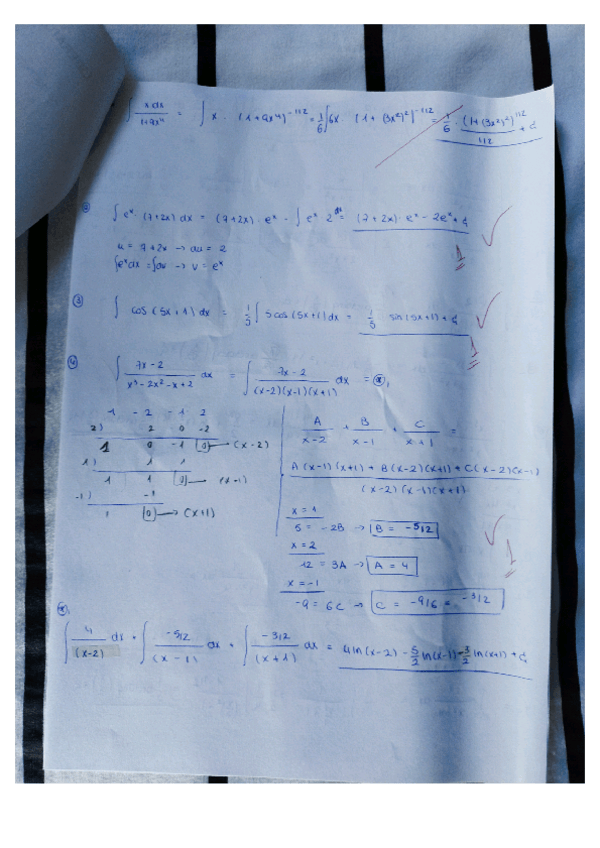 ∫ x dx / 1+9x⁴ = ∫ x · (1+9x⁴)^-1/2 = 1/6 ∫ 6x · (1+(3x²)²)^-1/2 = 1/6 · (1+(3x²)²)^1/2 / 1/2 + C
② ∫ eˣ · (7+2x) dx = (7+2x) · eˣ - ∫ eˣ · 2 dx = (7+2x) · eˣ - 2eˣ + C
u = 7+2x → du = 2
∫eˣdx = ∫dv → v = eˣ
1
③ ∫ cos(5x+1) dx = 1/5 ∫ 5cos(5x+1) dx = 1/5 sin(5x+1) + C
1
④ ∫ 7x-2 / x³-2x²-x+2 dx = ∫ 7x-2 / (x-2)(x-1)(x+1) dx = ⊛,
1 -2 -1 2
2) 2 0 -2
1 0 -1 0 → (x-2)
1) 1 1
1 1 0 → (x-1)
-1) -1
1 0 → (x+1)
A / x-2 + B / x-1 + C / x+1 =
A(x-1)(x+1) + B(x-2)(x+1) + C(x-2)(x-1) / (x-2)(x-1)(x+1)
x = 1
5 = -2B → B = -5/2
x = 2
12 = 3A → A = 4
x = -1
-9 = 6C → C = -9/6 = -3/2
1
⊛,
∫ 4 / (x-2) dx + ∫ -5/2 / (x-1) dx + ∫ -3/2 / (x+1) dx = 4ln(x-2) - 5/2 ln(x-1) - 3/2 ln(x+1) + C